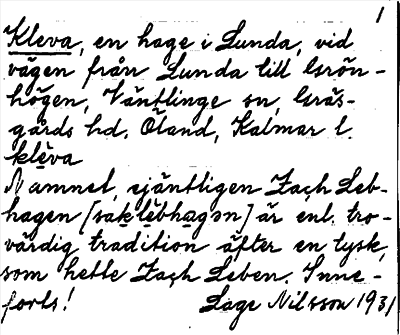 1
Kleva, en hage i Lunda, vid
vägen från Lunda till Grön-
högen, Väntlinge sn, Gräs-
gårds hd, Öland, Kalmar l.
klèva
Namnet, ejäntligen Zach Leb-
hagen [sak lèbhagən] är enl. tro-
värdig tradition äfter en tysk,
som hette Zach Leben. Inne-
forts!
Lage Nilsson 1931